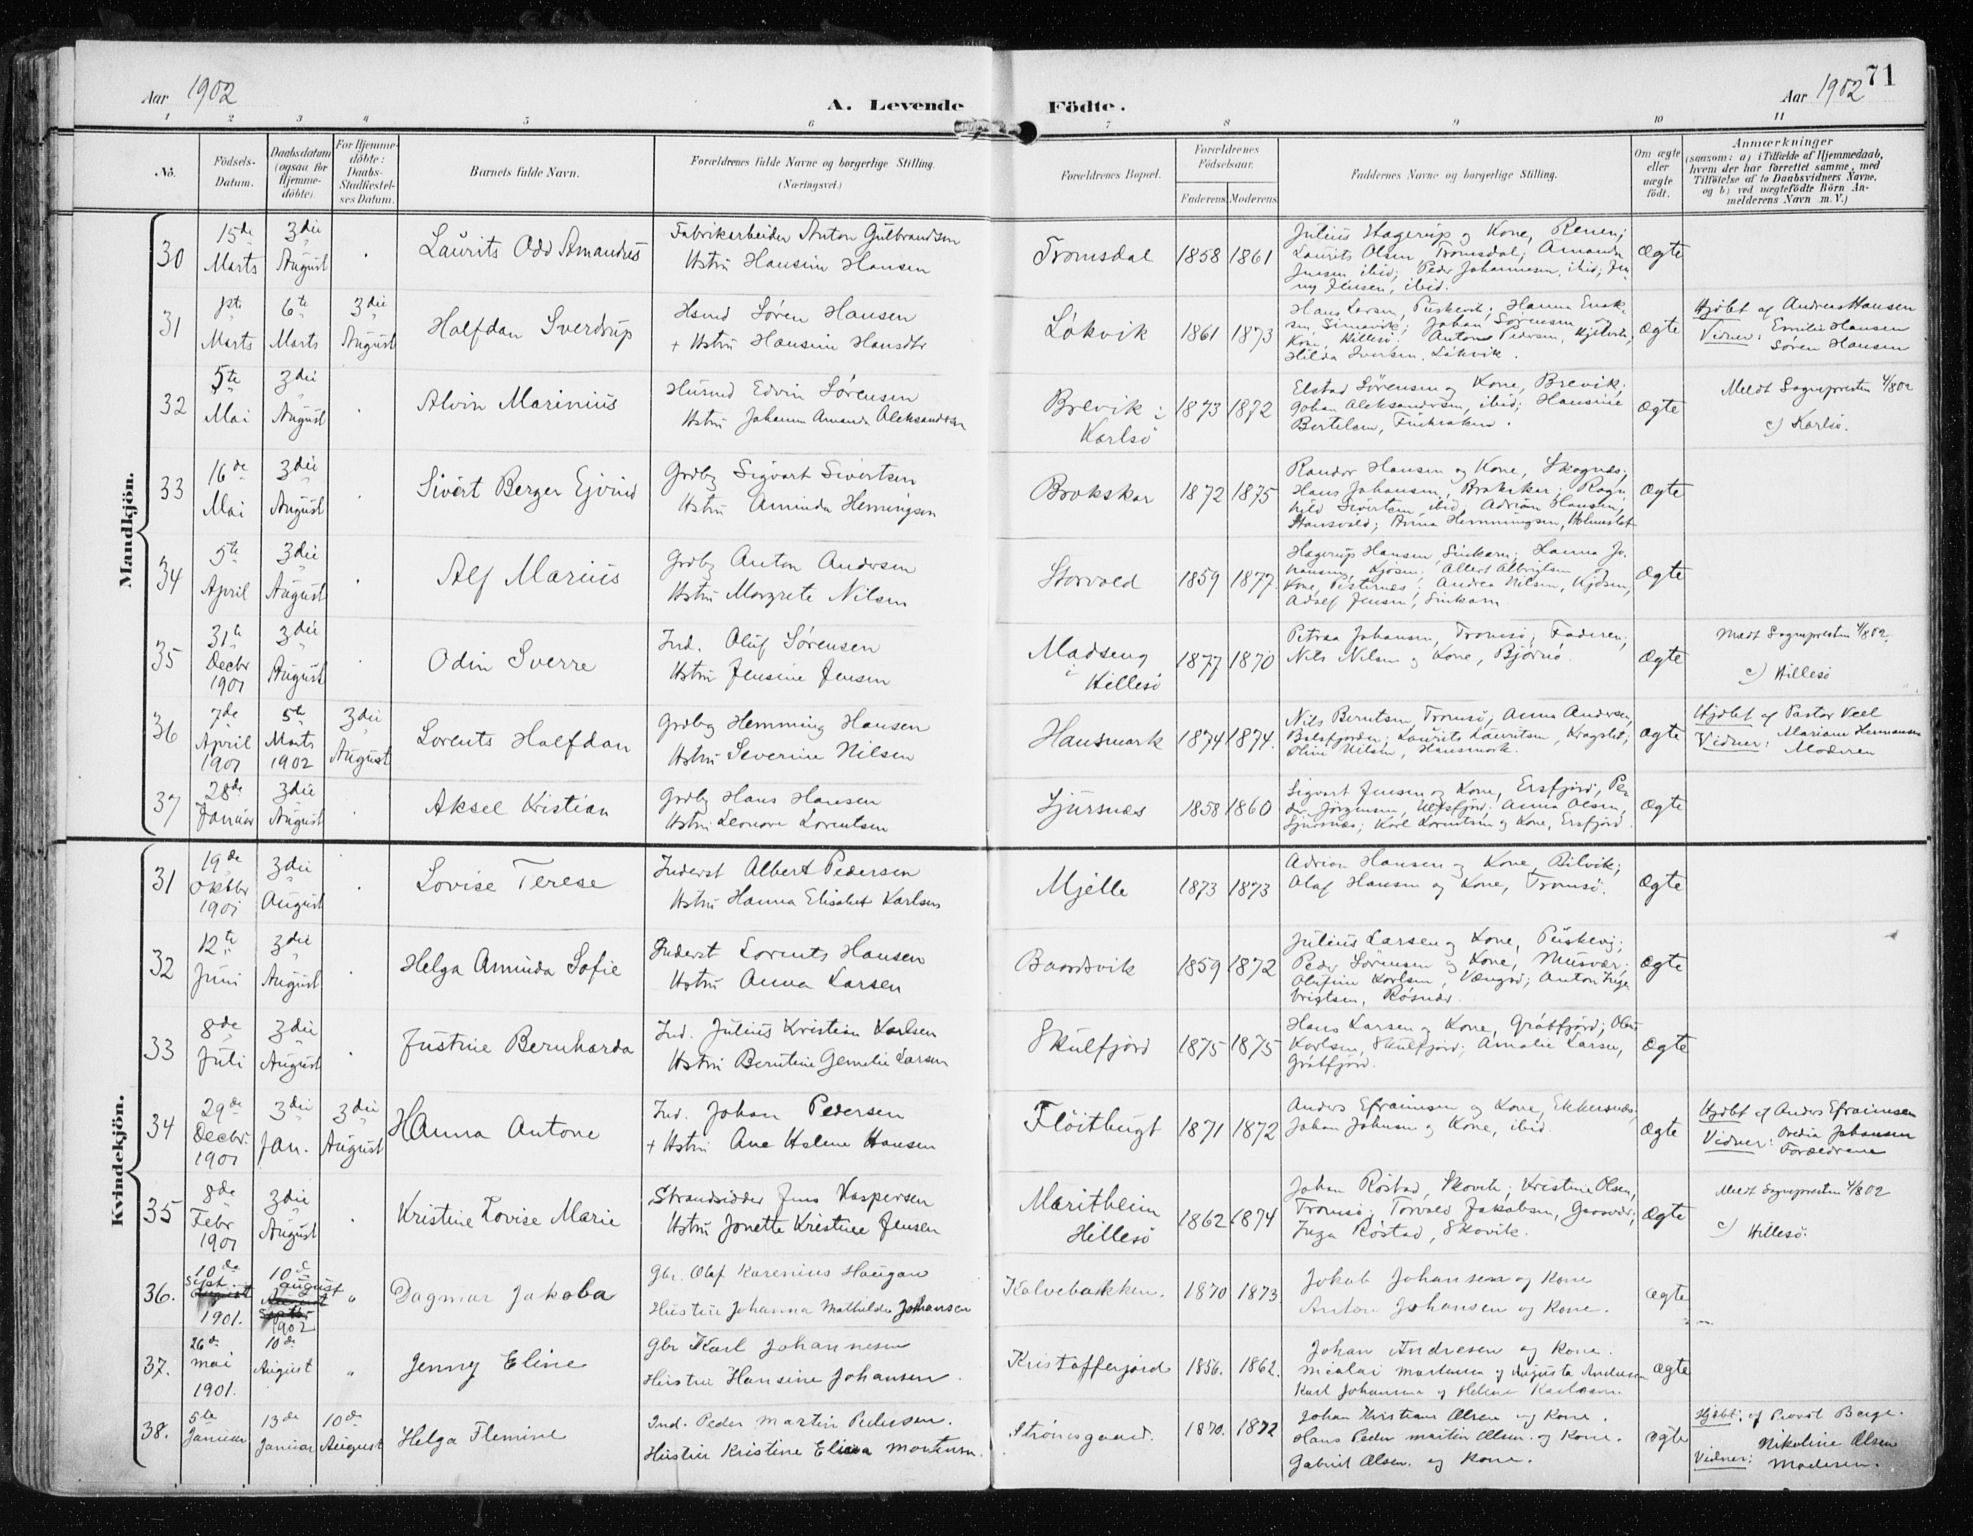 Aar 1902
A. Levende Födte.
Aar 1902
71
1 2 3 4 5 6 7 8 9 10 11
No.
Födsels-
Datum.
Daabsdatum
(ogsaa for
Hjemme-
döbte).
For Hjemme-
döbte:
Daabs-
Stadfæstel-
ses Datum.
Barnets fulde Navn.
Forældrenes fulde Navne og borgerlige Stilling.
(Næringsvei.)
Forældrenes Bopæl.
Forældrenes
Födselsaar.
Faderens Moderens
Faddernes Navne og borgerlige Stilling.
Om ægte
eller
uægte
födt.
Anmærkninger
(saasom: a) i Tilfælde af Hjemmedaab,
hvem der har forrettet samme, med
Tilföielse af to Daabsvidners Navne,
og b) ved uægtefödte Börn An-
melderens Navn m. V.)
Mandkjön.
30
15de
Marts
3die
August
Laurits Odd Amandus
Fabrikarbeider Anton Gulbrandsen
Hstru Hansine Hansen
Tromsdal
1858 1861
Julius Hagerup og Kone, Renen;
Laurits Olsen, Tromsdal; Amanda
Jensen, ibid; Peder Johannesen, ibid; Jen
ny Jensen, ibid.
Ægte
31
8de
Marts
6te
Marts
3die
August
Halfdan Sverdrup
Hsmd Søren Hansen
+ Hstru Hansine Hansdtr
Løkvik
1861 1873
Hans Larsen,
Johan Sørensen og
Kone, Hillesø; Anton Pedersen,
Hilda Iversen, Løkvik.
Ægte
Hjdbt af Andreas Hansen
Vidner: Emilie Hansen
Søren Hansen
32
5te
Mai
3die
August
Alvin Marinius
Husmd Edvin Sørensen
Hstru Johanna Amanda Aleksandersen
Brevik i
Karlsø
1873 1872
Elstad Sørensen og Kone, Brevik;
Johan Aleksandersen, ibid; Hansine
Bertelsen, Finkroken.
Ægte
Meldt Sognepresten 4/8 02
c) Karlsø.
33
16de
Mai
3die
August
Sivert Berger Ejvind
Grdbg Sigvart Sivertsen
Hstru Aminda Hemingsen
Brokskar
1872 1875
Randor Hansen og Kone, Skognes;
Hans Johansen, Brokskar; Ragn
hild Sivertsen, ibid, Adrian Hansen,
Anna Hemmingsen, Holmeslet
Ægte
34
5te
April
3die
August
Alf Marius
Grdbg Anton Andersen
Hstru Margrete Nilsen
Storvold
1859 1877
Hagerup Hansen, Sinkarn; Hanna Jo
hansen, Kjøsen; Albert Albrigtsen og
Kone, Pisternes; Andrea Nilsen, Kjosen,
Adolf Jensen, Sinkarn
Ægte
35
31te
Decbr
1901
3die
August
Odin Sverre
Ind. Oluf Sørensen
Hstru Jensine Jensen
Madseng
i Hillesø
1877 1870
Petraa Johansen, Tromsø; Faderen;
Nils Nilsen og Kone, Bjørnø.
Ægte
Meldt Sognepresten 4/8 02.
c) Hillesø
36
7de
April
1901
5te
Marts
1902
3die
August
Lorents Halfdan
Grdbg Hemming Hansen
Hstru Severine Nilsen
Hansmark
1874 1874.
Nils Berntsen, Tromsø; Anna Andersen,
Balsfjorden; Laurits Lauritsen, Kragslet;
Oline Nilsen, Hansmark.
Ægte
Hjdbt af Pastor Veel
Vidner: Mariane Hermansen
Moderen
37
28de
Januar
3die
August
Aksel Kristian
Grdbg Hans Hansen
Hstru Leonore Lorentsen
Sjursnæs
1858 1860
Sigvart Jensen og Kone, Ersfjord, Pe-
der Jørgensen, Ulfsfjord; Anna Olsen,
Sjursnæs; Karl Lorentsen og Kone, Ersfjord
Ægte
Kvindekjön.
31
19de
Oktbr
1901
3die
August
Lovise Terese
Inderst Albert Pedersen
Hstru Hanna Elisabet Karlsen
Mjelle
1873 1873
Adrian Hansen og Kone, Bilvik;
Olaf Hansen og Kone, Tromsø.
Ægte
32
12te
Juni
3die
August
Helga Aminda Sofie
Inderst Lorents Hansen
Hstru Anna Larsen
Baardsvik
1859 1872
Julius Larsen og Kone,
Peder Sørensen og Kone, Musvær;
Olufine Karlsen, Vængsø; Anton Inge
brigtsen, Røsnæs.
Ægte
33
8de
Juli
3die
August
Justine Bernharda
Ind. Julius Kristian Karlsen
Hstru Berntine Gemelie Larsen
Skulfjord
1875 1875
Hans Larsen og Kone, Grøtfjord;
Karlsen, Skulfjord; Amalie Larsen,
Grøtfjord.
Ægte
34
29de
Decbr.
1901
3die
Jan.
3die
August
Hanna Antone
Ind. Johan Pedersen
+ Hstru Ane Helene Hansen
Fløitbugt
1871 1872
Anders Efraimsen og Kone, Ekkersnæs;
Johan Johnsen og Kone, ibid.
Ægte
Hjdbt af Anders Efraimsen
Vidner: Ovedia Johansen
Forældrene
35
8de
Febr
1901
3die
August
Kristine Lovise Marie
Strandsidder Jens Kaspersen
Hstru Jonette Kristine Jensen
Maritheim
Hillesø
1862 1874
Johan Røstad, Skovik; Kristine Olsen,
Tromsø; Torvald Jakobsen, Gaasvær;
Inga Røstad, Skovik.
Ægte
Meldt Sognepresten 4/8 02
c) Hillesø.
36.
10de
Sept.
August
1901.
10de
august
1902
"
Dagmar Jakoba
Gbr. Olaf Karenius Haugan
Hustru Johanna Mathilde Johansen
Kalvebakken.
1870 1873.
Jakob Johansen og Kone
Anton Johansen og Kone.
Ægte
37.
26de
mai
1901.
10de
August
"
Jenny Eline
Gbr Karl Johannesen
Hustru Hansine Johansen.
Kristofferjord
1856. 1862.
Johan Andresen og Kone.
Nicolai Martinsen og Augusta Andersen
Karl Johansen og Helene Karlsen.
Ægte
38.
5te
Januar
13de
Januar
10de
August
Helga Flemine
Ind. Peder Martin Pedersen.
Hustru Kristine Elena Mortensen.
Strømsgaard.
1870. 1872
Johan Kristian Olsen og Kone.
Hans Peder Martin Olsen. og Kone.
Gabriel Olsen. og Kone.
Ægte
Hjdbt. af Provst Berge.
Vidner: Nikoline Olsen
Moderen.